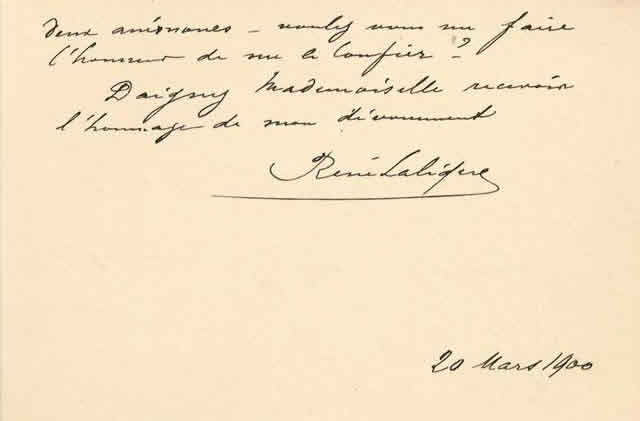 deux anémones – voulez vous me faire
l'honneur de me le confier ?
Daignez Mademoiselle recevoir
l'hommage de mon dévouement
René Lalique
20 Mars 1900